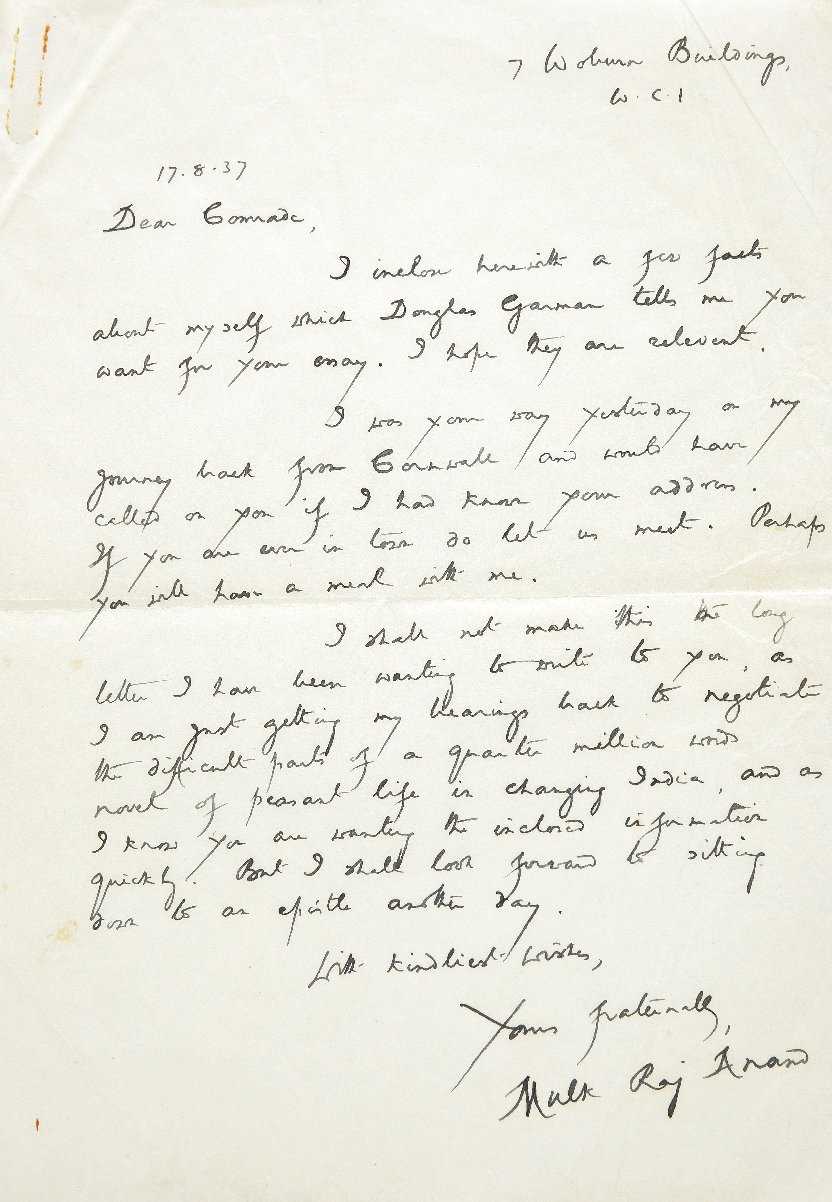 7 Woburn Buildings,
W.C.1
17.8.37
Dear Comrade,
I inclose herewith a few facts
about myself which Douglas Garman tells me you
want for your essay. I hope they are relevent.
I was your way yesterday on my
journey back from Cornwall and would have
called on you if I had known your address.
If you are ever in town do let us meet. Perhaps
you will have a meal with me.
I shall not make this the long
letter I have been wanting to write to you, as
I am just getting my bearings back to negotiate
the difficult parts of a quarter million words
novel of peasant life in changing India, and as
I know you are wanting the inclosed information
quickly. But I shall look forward to sitting
down to an epistle another day.
With kindliest wishes,
Yours fraternally,
Mulk Raj Anand